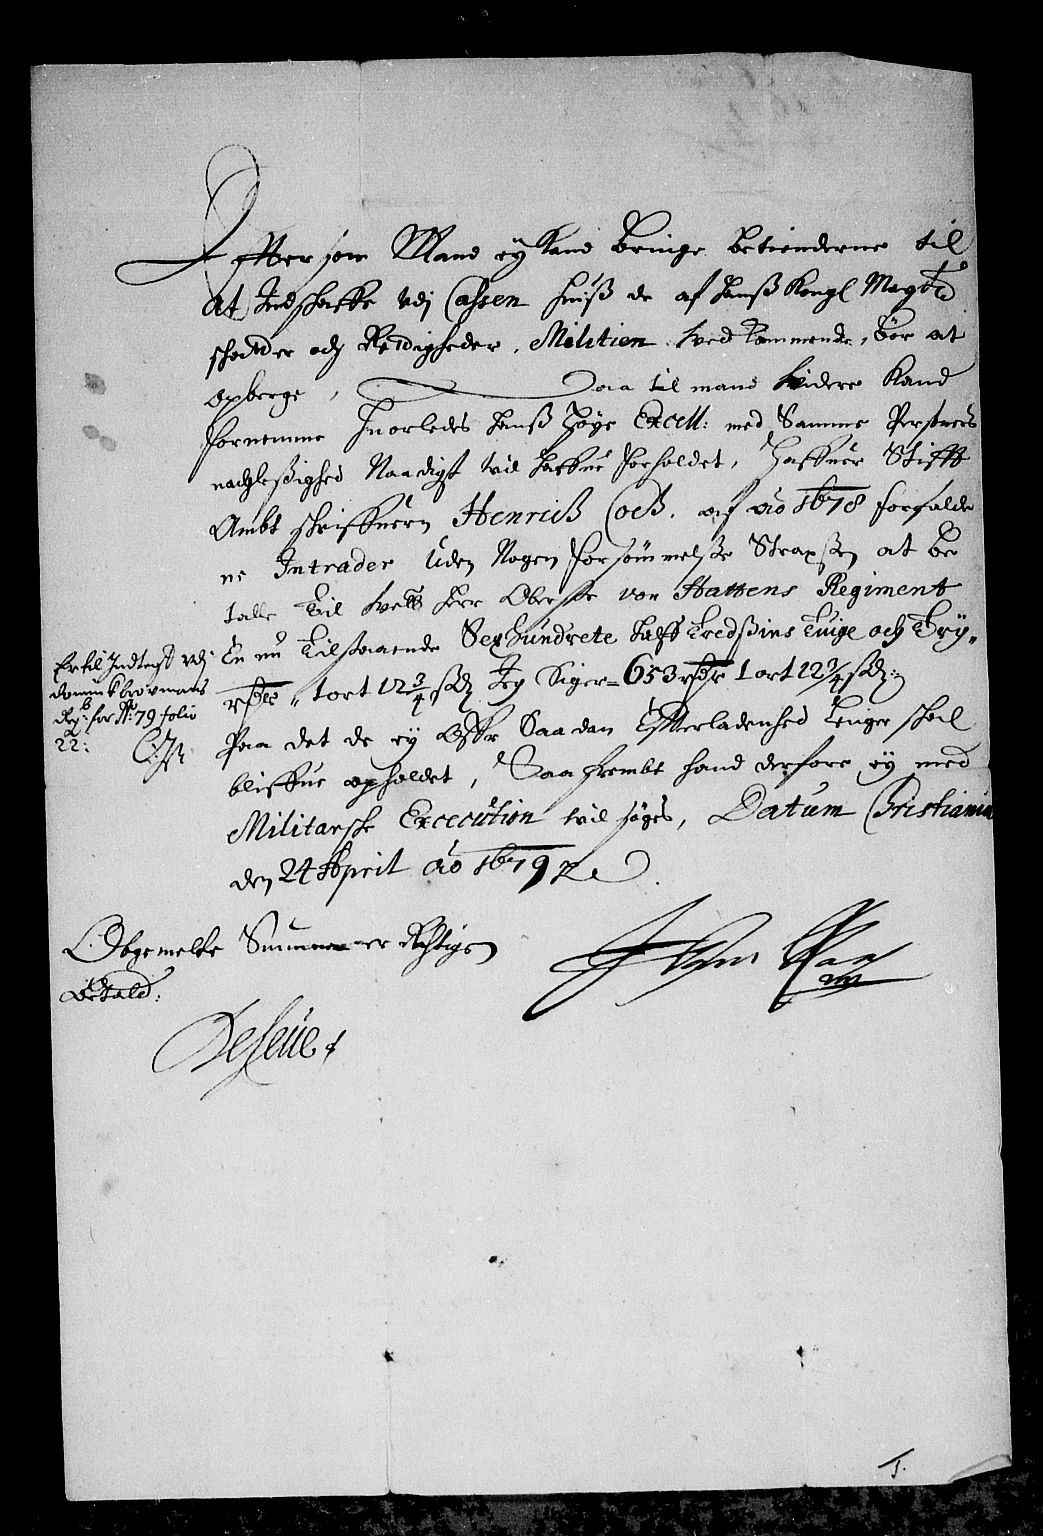 Efftersom Mand ey kand bringe betienderne til
at Indskaffe udj Cassen huis de af hanß Kongl Mayts
skatter och Rettigheder, Militien ved kommende, bør at
opberge, Daa til mand videre kand
fornemme huorledes hanß høye Excell: med Samme Persones
nachleßighed Naadigst vil haffue forholdet, Haffuer Stifft
Ambt schriffuern Henrich Coch, af ao 1678 forfalde
ne Intrader Uden Nogen forsømmelse Straxsen at be
talle til velb herr Oberste von Hattens Regiment
En nu tilstaaende Sexhundrete halftredsins tiuge och Try,,
rdr,, 1 ort 12 3/4 sk Jeg Siger= 653 rdr 1 ort 12 3/4 sk:
Paa det de ey offr Saadan Effterladenhed lenger skal
bliffue opholdet, Saafrembt hand derfore ey med
Militarske Execution vil søges, Datum Christiania
den 24 April Ao 1679
Er til Indtegt udj
Reg: for Ao 79 folio
22:
Obgemelte Summa er Rigtigen
betald: